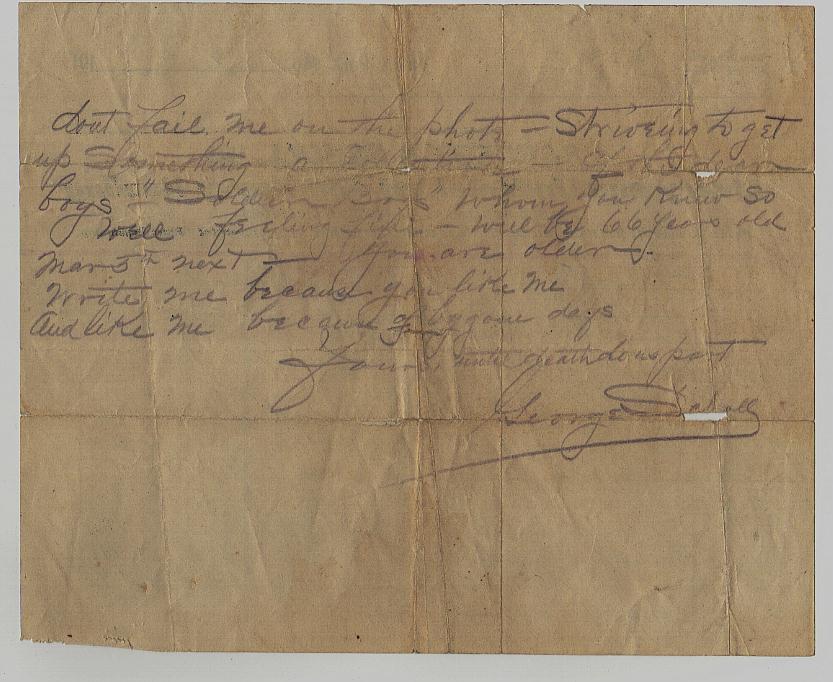 dont fail me on the photo = Striveing to get
up Something a
boys = "Soldier Boys" whom you knew so
well feeling fine - will be 66 years old
Mar 5th next - you are older.
Write me because you like me
And like me because of bygone days
Yours, until death do us part
George